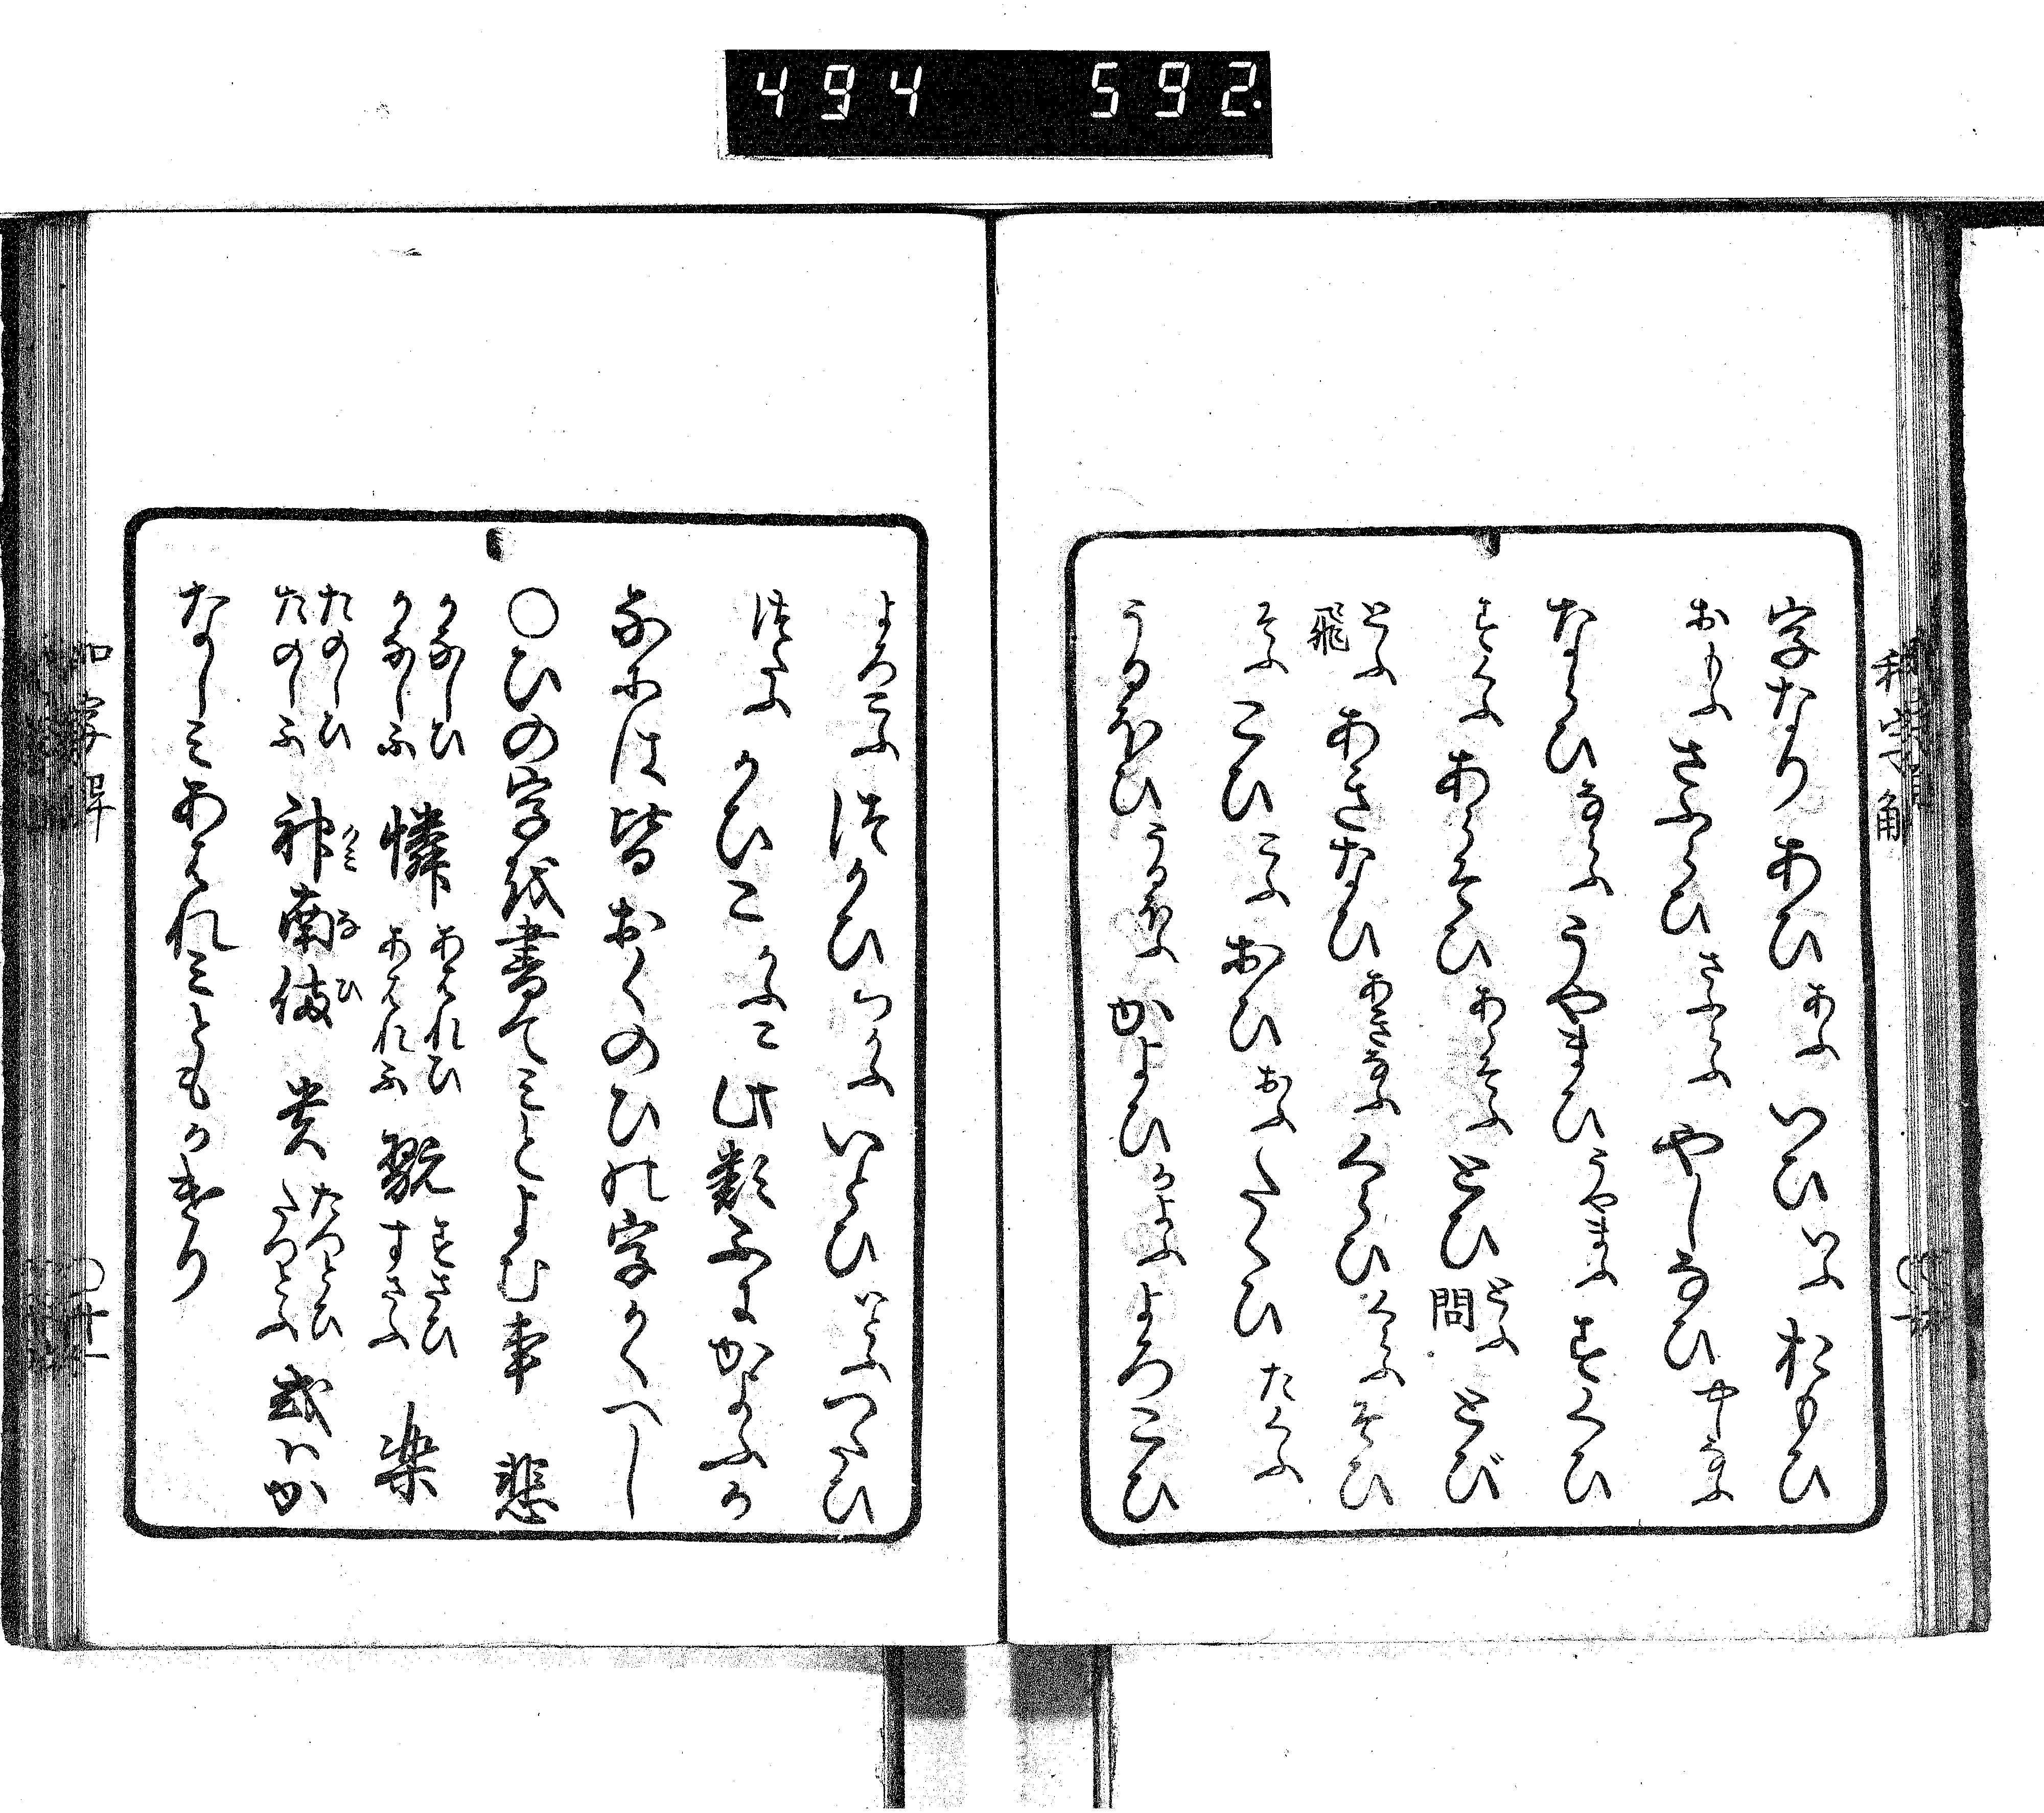 494 592
字なり あひ あふ いひ いふ おもひ
おもふ さふらひ さふらふ やしなひ やしなふ
ならひ ならふ うやまひ うやまふ すくひ
すくふ あらそひ あらそふ とひ とふ 問 とび
とふ 飛 あきなひ あきなふ くらひ くらふ そひ
そふ こひ こふ おひ おふ たくひ たくふ
うるほひ うるほふ かよひ かよふ よろこひ
よろこふ つかひ つかふ いとひ いとふ つたひ
つたふ かひこ かふこ 此類ふにかよふか
なには皆おくのひの字かくへし
〇ひの字を書てみとよむ事 悲
かなしひ かなしふ 憐 あはれひ あはれふ 翫 すさひ すさふ 楽
たのしひ たのしふ 神南備 かミ なひ 貴 たつとひ たつとふ 或ハか
なしミあはれミともかけり